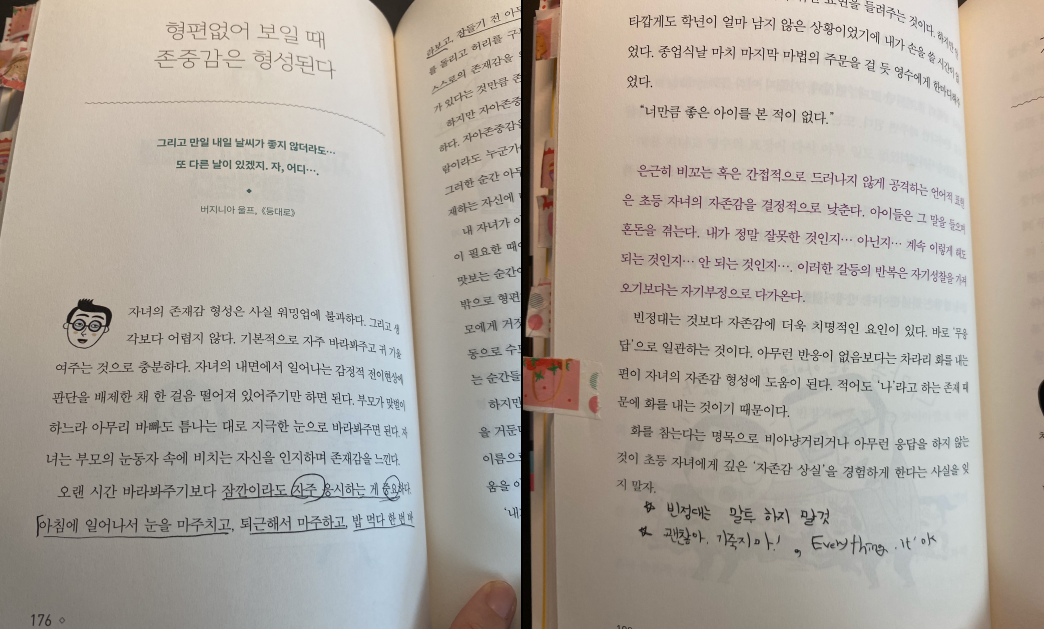 형편없어 보일 때
존중감은 형성된다
그리고 만일 내일 날씨가 좋지 않더라도…
또 다른 날이 있겠지. 자, 어디….
버지니아 울프, 《등대로》
자녀의 존재감 형성은 사실 워밍업에 불과하다. 그리고 생
각보다 어렵지 않다. 기본적으로 자주 바라봐주고 귀 기울
여주는 것으로 충분하다. 자녀의 내면에서 일어나는 감정적 전이현상에
판단을 배제한 채 한 걸음 떨어져 있어주기만 하면 된다. 부모가 맞벌이
하느라 아무리 바빠도 틈나는 대로 지극한 눈으로 바라봐주면 된다. 자
녀는 부모의 눈동자 속에 비치는 자신을 인지하며 존재감을 느낀다.
오랜 시간 바라봐주기보다 잠깐이라도 자주 응시하는 게 중요하다.
아침에 일어나서 눈을 마주치고, 퇴근해서 마주하고, 밥 먹다 한 번 바
176
라보고, 잠들기 전 아무
를 돌리고 허리를 구
스스로의 존재감을
가 있다는 것만큼 존
하지만 자아존중
하다. 자아존중감을
람이라도 누군가
그러한 순간 아무
재하는 자신에
내 자녀가 이
이 필요한 때이
맛보는 순간이
밖으로 형편
모에게 거짓
동으로 수도
는 순간들
하지만
을 거둔
이름으로
움을 이
'내
표현을 들려주는 것이다. 하지만 안
타깝게도 학년이 얼마 남지 않은 상황이었기에 내가 손을 쓸 시간이 없
었다. 종업식날 마치 마지막 마법의 주문을 걸 듯 영수에게 한마디해주
었다.
“너만큼 좋은 아이를 본 적이 없다.”
은근히 비꼬는 혹은 간접적으로 드러나지 않게 공격하는 언어적 표현
은 초등 자녀의 자존감을 결정적으로 낮춘다. 아이들은 그 말을 들으며
혼돈을 겪는다. 내가 정말 잘못한 것인지… 아닌지… 계속 이렇게 해도
되는 것인지… 안 되는 것인지…. 이러한 갈등의 반복은 자기성찰을 가져
오기보다는 자기부정으로 다가온다.
빈정대는 것보다 자존감에 더욱 치명적인 요인이 있다. 바로 ‘무응
답’으로 일관하는 것이다. 아무런 반응이 없음보다는 차라리 화를 내는
편이 자녀의 자존감 형성에 도움이 된다. 적어도 ‘나’라고 하는 존재 때
문에 화를 내는 것이기 때문이다.
화를 참는다는 명목으로 비아냥거리거나 아무런 응답을 하지 않는
것이 초등 자녀에게 깊은 ‘자존감 상실’을 경험하게 한다는 사실을 잊
지 말자.
☆ 빈정대는 말투 하지 말것
☆ 괜찮아. 기죽지마! , Everything. it' ok